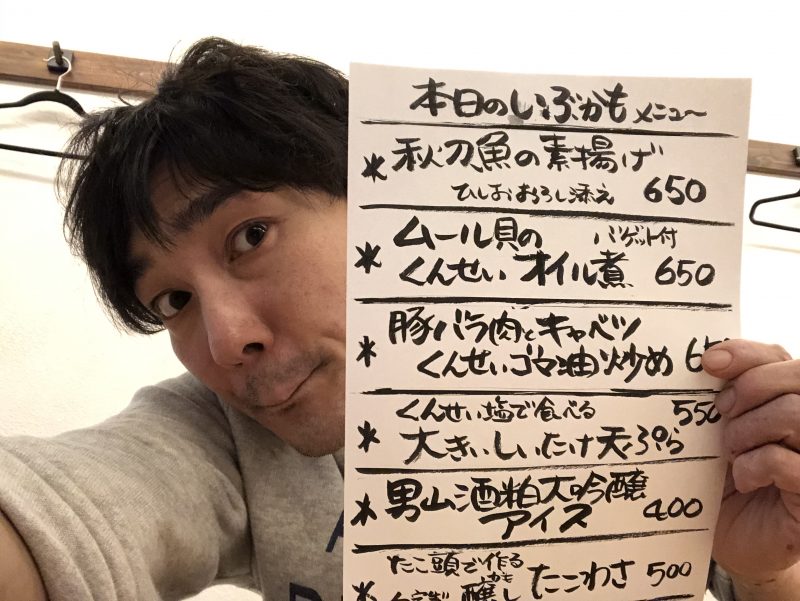 本日のいぶかもメニュー
*秋刀魚の素揚げ
ひしおおろし添え 650
*ムール貝の バゲット付
くんせいオイル煮 650
*豚バラ肉とキャベツ
くんせいゴマ油炒め 65
くんせい塩で食べる 550
*大きいしいたけ天ぷら
*男山酒粕大吟醸
アイス 400
たこ頭で作る
*醸し たこわさ 500